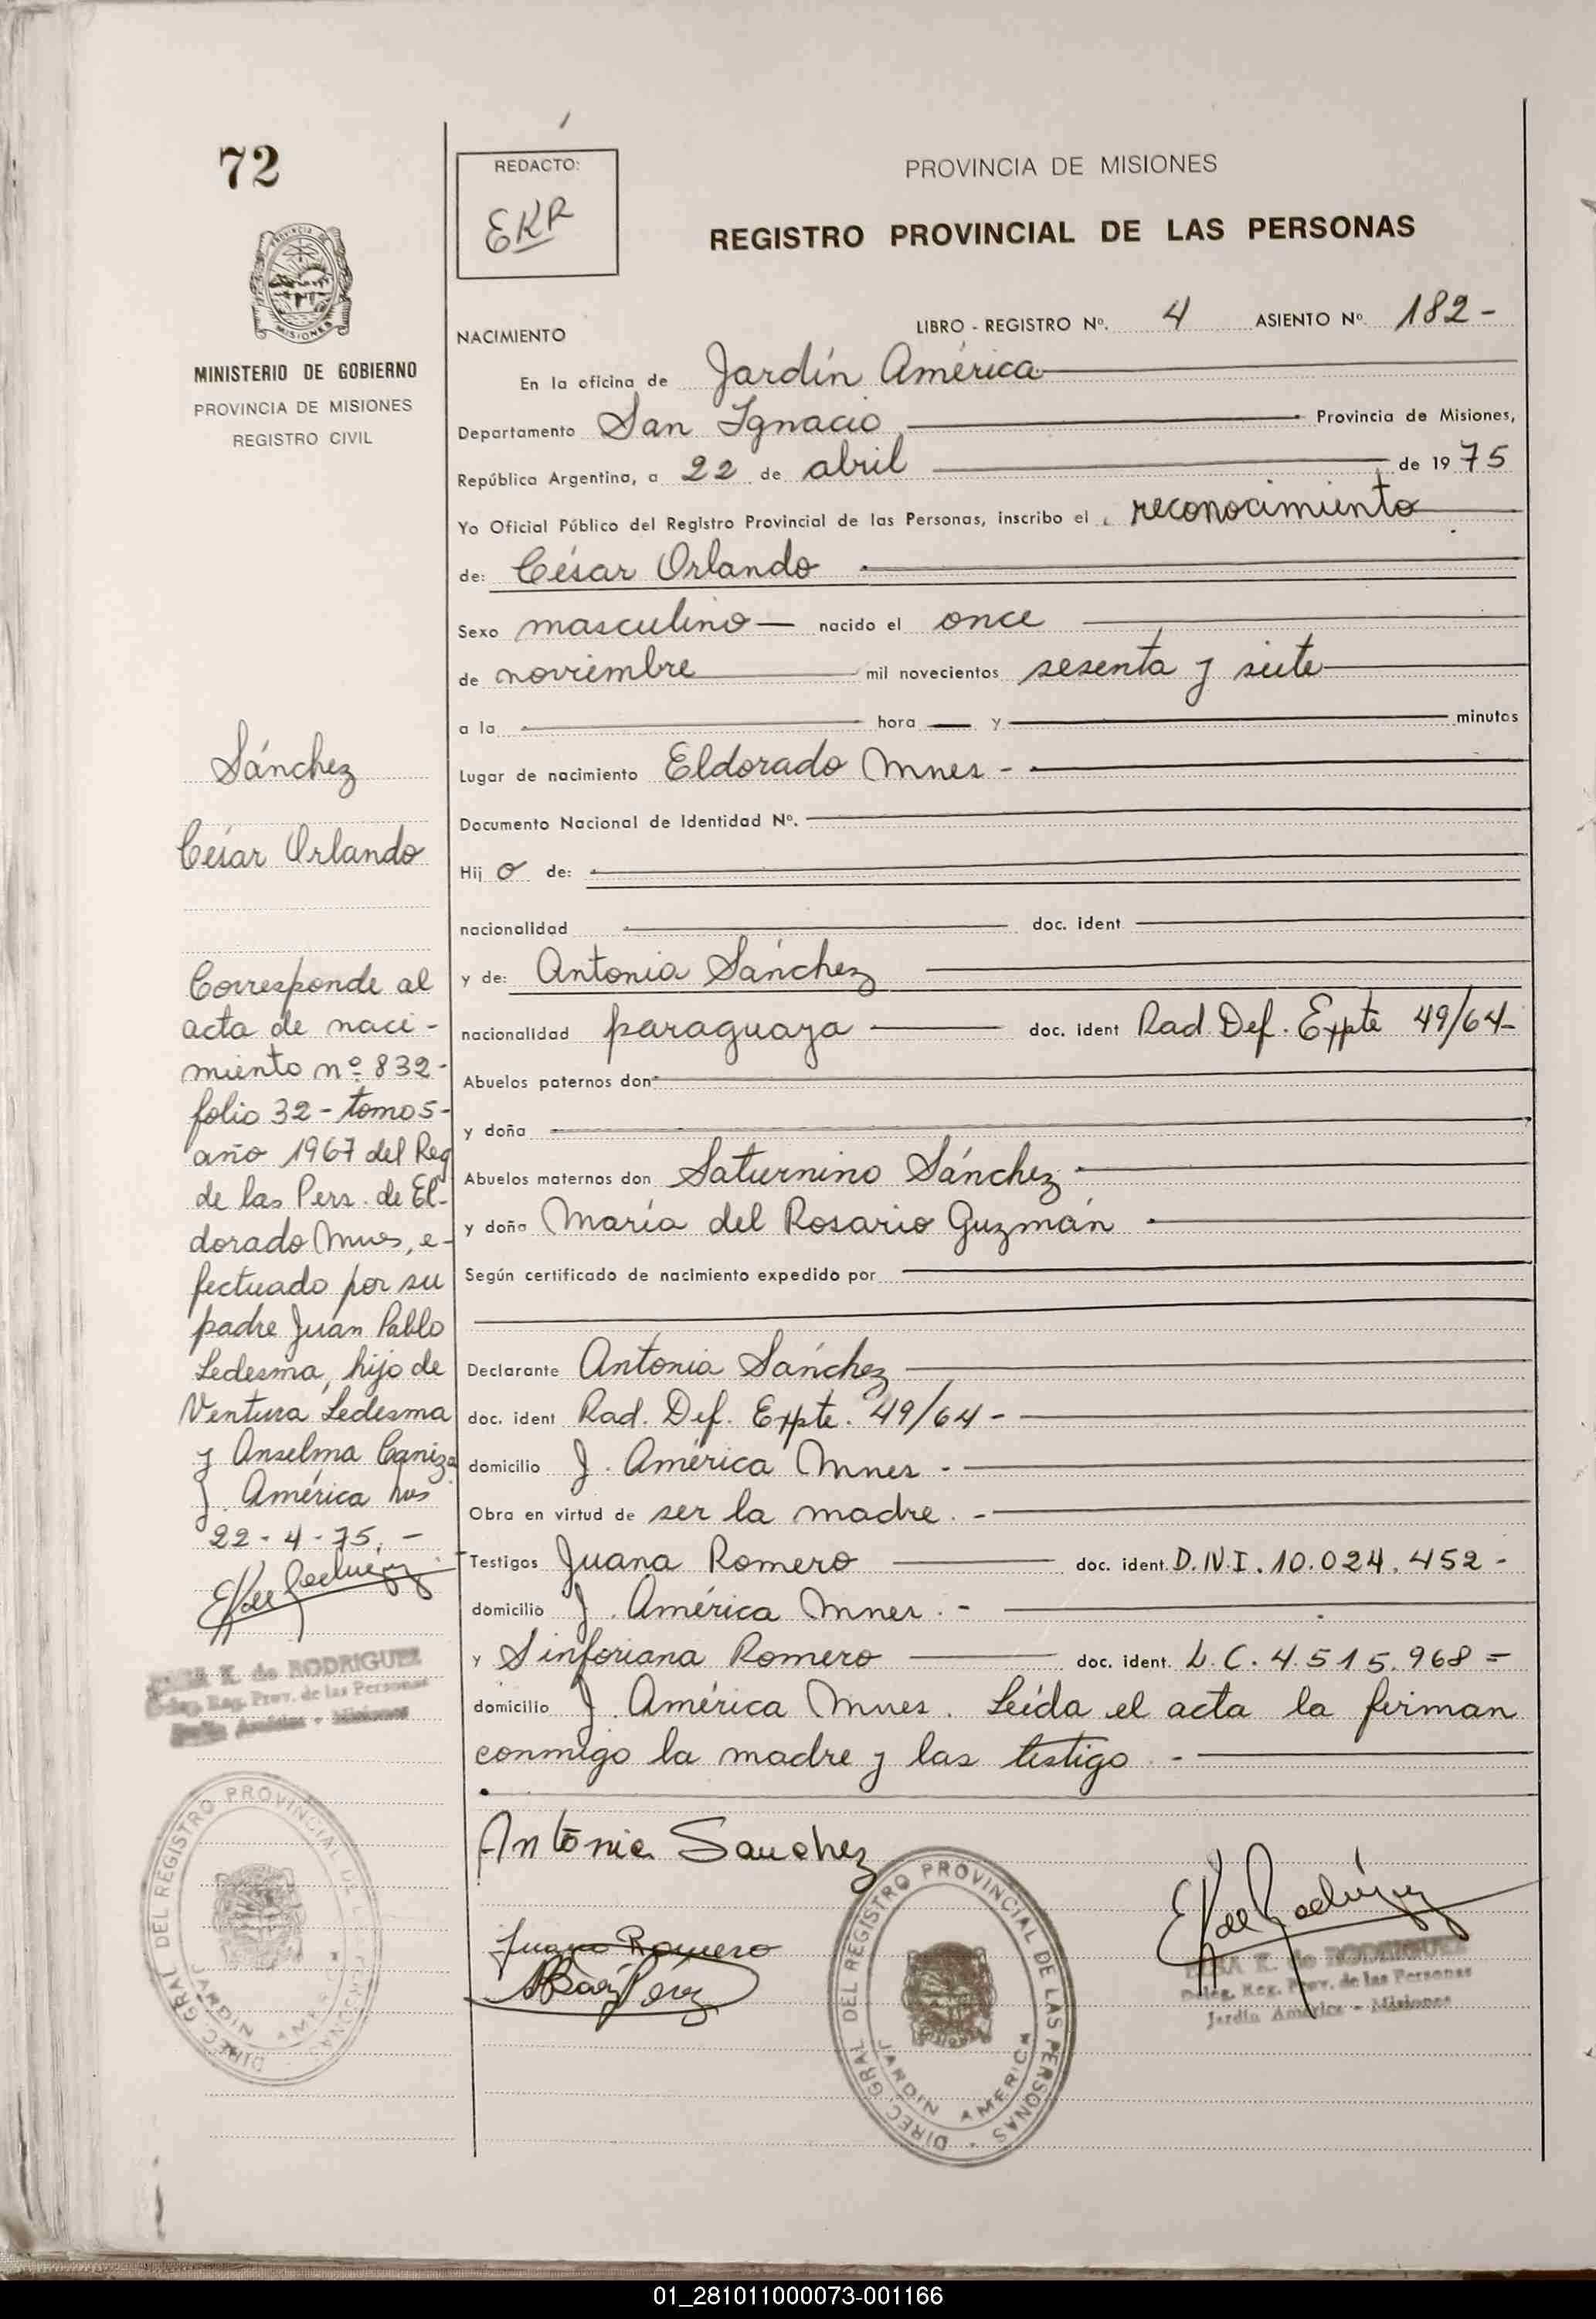 72
REDACTO:
EKR
PROVINCIA DE MISIONES
REGISTRO PROVINCIAL DE LAS PERSONAS
MISIONES
MINISTERIO DE GOBIERNO
PROVINCIA DE MISIONES
REGISTRO CIVIL
NACIMIENTO
LIBRO - REGISTRO Nº. 4 ASIENTO Nº 182 -
En la oficina de Jardín América
Departamento San Ignacio Provincia de Misiones,
República Argentina, a 22 de abril de 1975
Yo Oficial Público del Registro Provincial de las Personas, inscribo el reconocimiento
de: César Orlando
Sexo masculino — nacido el once
de noviembre mil novecientos sesenta y siete
a la hora y minutos
Lugar de nacimiento Eldorado Mnes -
Documento Nacional de Identidad Nº.
Hij o de:
nacionalidad doc. ident
y de: Antonia Sánchez
nacionalidad paraguaya doc. ident Rad. Def. Expte 49/64-
Abuelos paternos don
y doña
Abuelos maternos don Saturnino Sánchez
y doña María del Rosario Guzmán
Según certificado de nacimiento expedido por
Declarante Antonia Sánchez
doc. ident Rad. Def. Expte. 49/64 -
domicilio J. América Mnes -
Obra en virtud de ser la madre. -
Testigos Juana Romero doc. ident. D.N.I. 10.024.452 -
domicilio J. América Mnes. -
y Sinforiana Romero doc. ident. L.C. 4.515.968 =
domicilio J. América Mnes. Leída el acta la firman
conmigo la madre y las testigo. -
Antonia Sanchez
Juana Romero
DIREC. GRAL DEL REGISTRO PROVINCIAL DE LAS PERSONAS
JARDIN AMERICA
K. de RODRIGUEZ
Deleg. Reg. Prov. de las Personas
Jardín América - Misiones
Sánchez
César Orlando
Corresponde al
acta de naci-
miento nº 832-
folio 32 - tomo 5-
año 1967 del Reg
de las Pers. de El-
dorado Mnes, e-
fectuado por su
padre Juan Pablo
Ledesma, hijo de
Ventura Ledesma
y Anselma Caniza
J. América
22 - 4 - 75. -
K. de RODRIGUEZ
Deleg. Reg. Prov. de las Personas
Jardín América - Misiones
DIREC. GRAL DEL REGISTRO PROVINCIAL DE LAS PERSONAS
JARDIN AMERICA
01_281011000073-001166